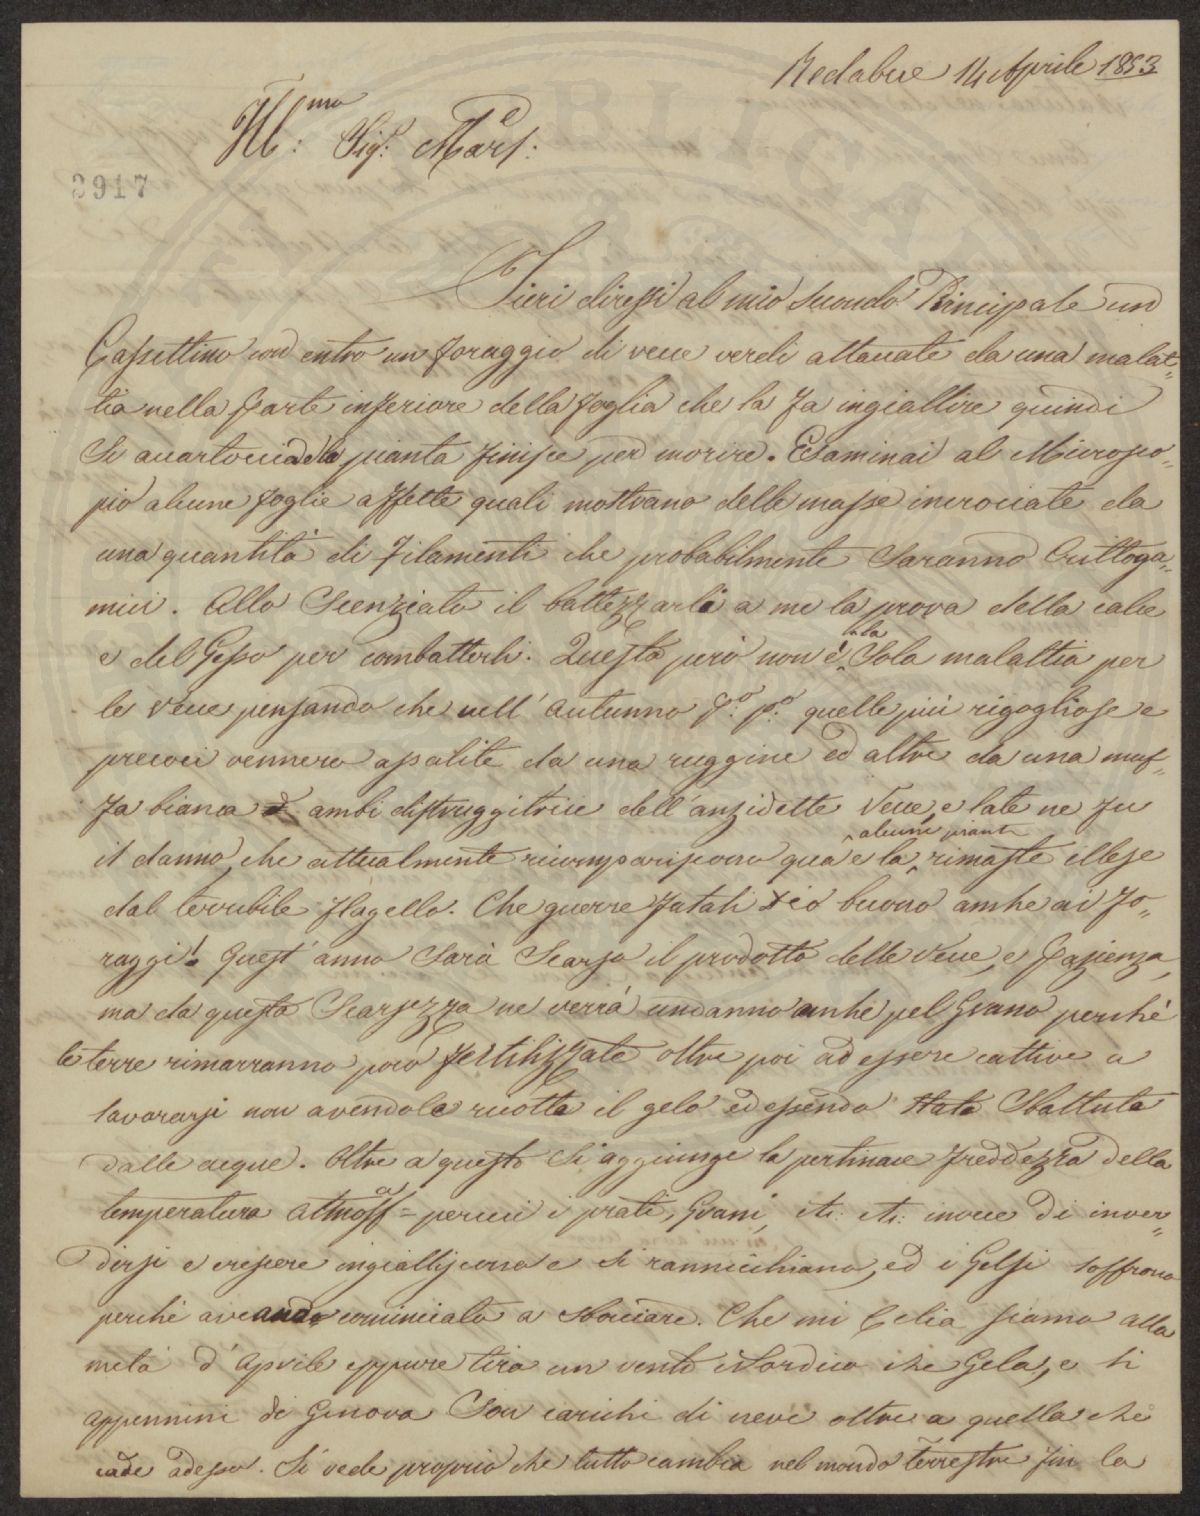 Redabue 14 Aprile 1853
Ill:mo Sig.r March:e
2917
Jeri diressi al mio secondo Principale un
Cassettino con entro un foraggio di vecce verdi attaccate da una malat=
tia nella parte inferiore della foglia che la fa ingiallire quindi
si accartoccia e la pianta finisce per morire. Esaminai al Microsco=
pio alcune foglie affette quali mostrano delle masse incrociate da
una quantità di filamenti che probabilmente saranno Crittoga=
mici. Allo Scenziato il battezzarli a me la prova della calce
e del Gesso per combatterli. Questa però non è la sola malattia per
le Vecce pensando che nell' Autunno p:o p:o quelle più rigogliose e
precoci vennero assalite da una ruggine ed altre da una muf=
fa bianca ambi distruggitrice dell'anzidette Vecce, e tale ne fu
il danno, che attualmente ricompariscono qua e la alcune piante rimaste illese
dal terribile flagello. Che guerre fatali Dio buono anche ai fo=
raggi! Quest' anno sarà scarso il prodotto delle Vecce, e pazienza,
ma da questa scarsezza ne verrà un danno anche pel Grano perchè
le terre rimarranno poco fertilizzate oltre poi ad essere cattive a
lavorarsi non avendole ricotte il gelo ed essendo state sbattute
dalle acque. Oltre a questo si aggiunge la pertinace freddezza della
temperatura atmosf=a percui i prati, Grani, etc: etc: invece di inver=
dirsi e crescere ingialliscono e si rannicchiano, ed i Gelsi soffrono
perchè aveando cominciato a sbocciare. Che mi Celia siamo alla
metà d' Aprile eppure tira un vento Nordico che Gela, e li
Appennini di Genova son carichi di neve oltre a quella che
cade adesso. Si vede proprio che tutto cambia nel mondo terrestre fin la